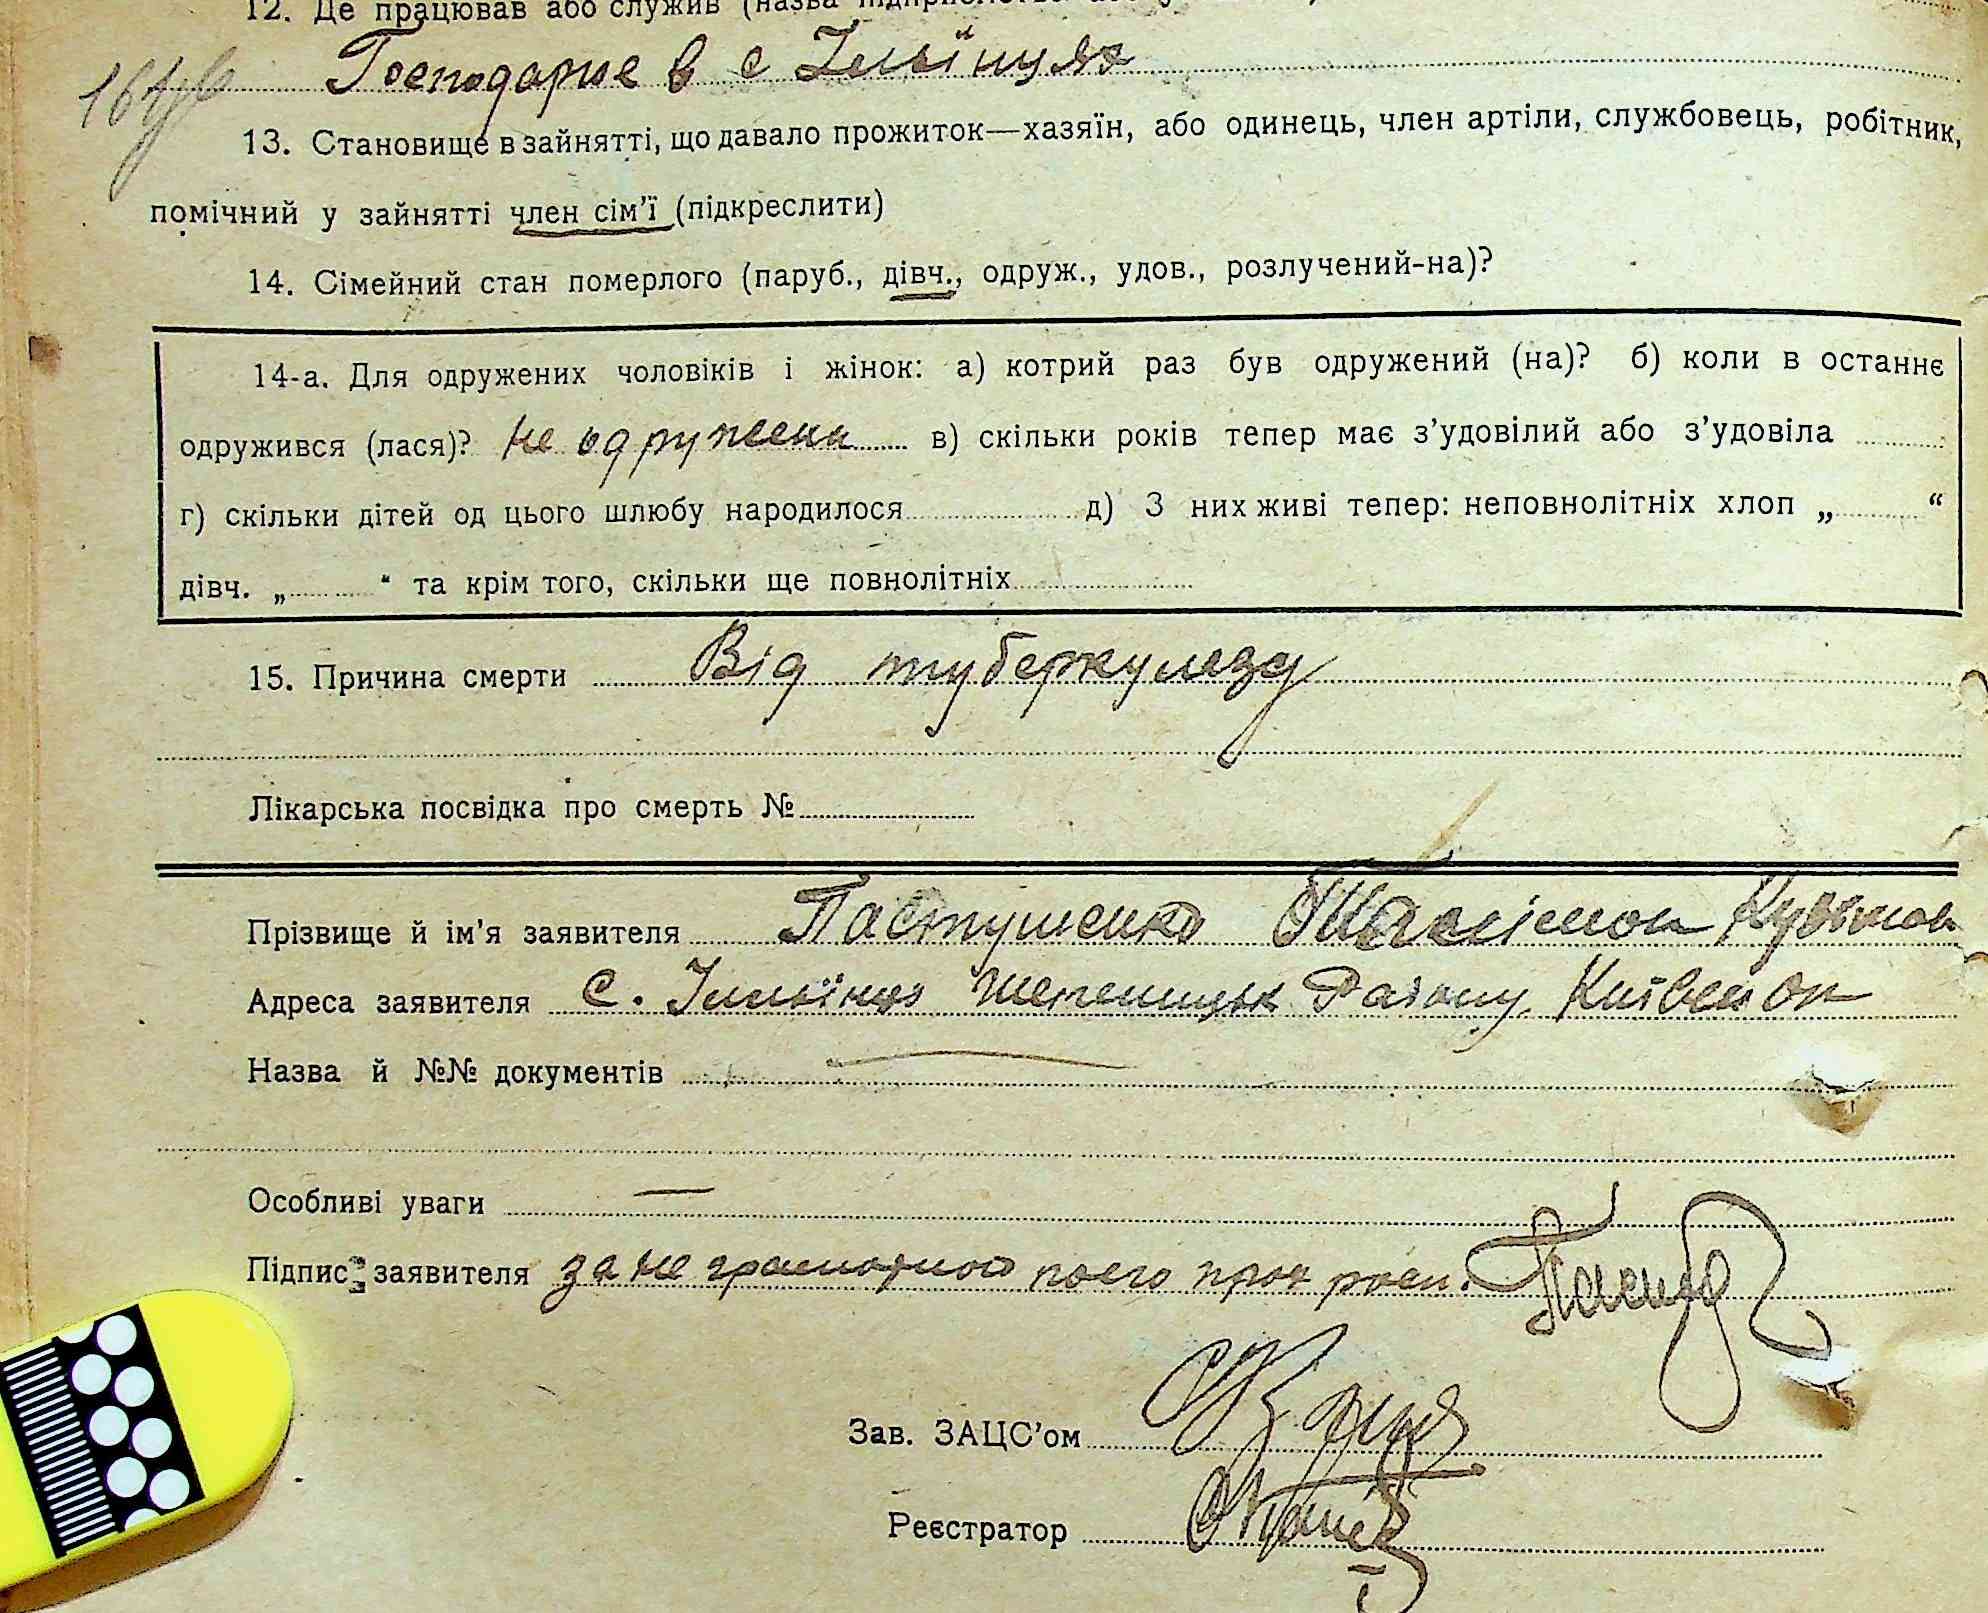 12. Де працював або служив (назва
Господарює в с Ільїнцях
13. Становище в зайнятті, що давало прожиток—хазяїн, або одинець, член артіли, службовець, робітник,
помічний у зайнятті член сім'ї (підкреслити)
14. Сімейний стан померлого (паруб., дівч., одруж., удов., розлучений-на)?
14-а. Для одружених чоловіків і жінок: а) котрий раз був одружений (на)? б) коли в останнє
одружився (лася)? не одружена в) скільки років тепер має з'удовілий або з'удовіла
г) скільки дітей од цього шлюбу народилося д) З них живі тепер: неповнолітніх хлоп „ “
дівч. „ “ та крім того, скільки ще повнолітніх
15. Причина смерти Від туберкулеза
Лікарська посвідка про смерть №
Прізвище й ім'я заявителя Пастушенко
Адреса заявителя С. Ільїнці Шепелицьк Району Київськ Ок
Назва й №№ документів
Особливі уваги —
Підпис заявителя за не грамотного
Зав. ЗАЦС'ом
Реєстратор